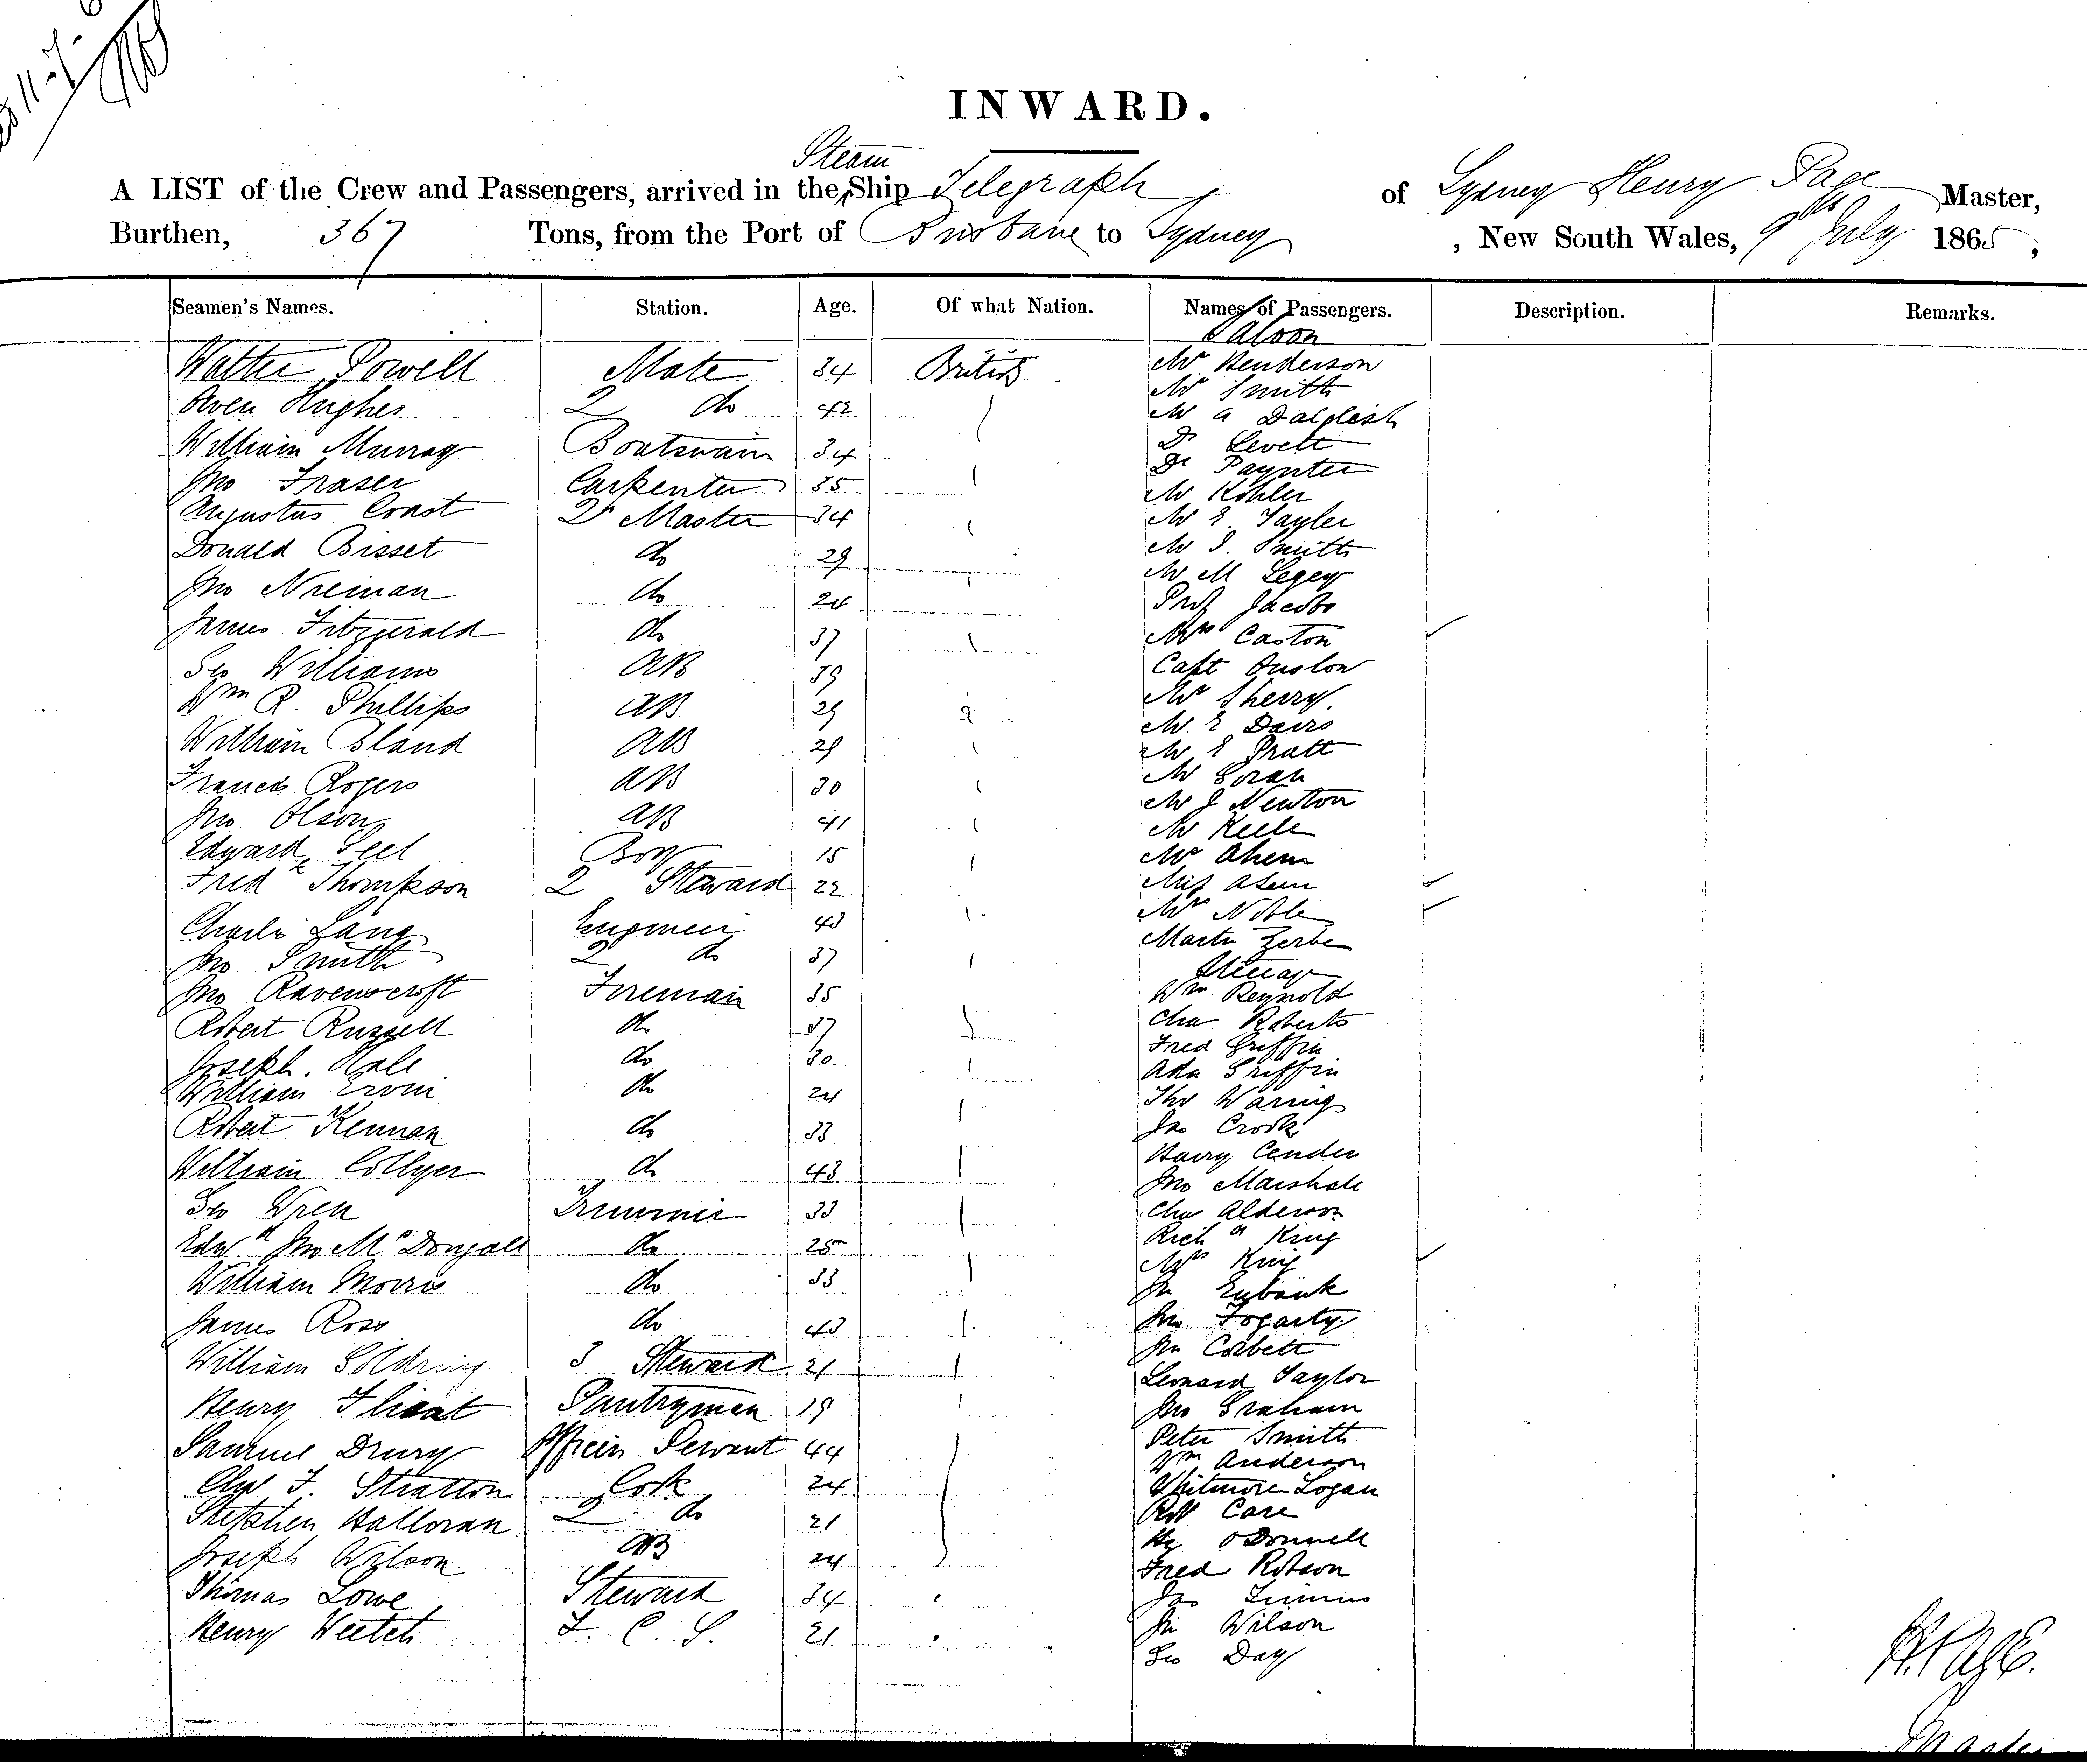 INWARD.
Steam
A LIST of the Crew and Passengers, arrived in the Ship Telegraph of Sydney Henry Page Master,
Burthen, 367 Tons, from the Port of Brisbane to Sydney , New South Wales, 9th July 1865,
Seamen's Names. Station. Age. Of what Nation. Names of Passengers. Description. Remarks.
Saloon
Walter Powell Mate 34 British Mr Henderson
Mr Smith
Owen Hughes 2 do 42 Mr A Dalgleish
William Murray Boatswain 34 Dr Levett
Dr Paynter
Jno Fraser Carpenter 35 Mr Kohler
Augustus Coast Qr Master 34 Mr E Tayler
Donald Bisset do 29 Mr J. Smith
Mr M Legey
Jno Nieman do 24 Prof Jacobs
James Fitzgerald do 37 Mrs Caston
Geo Williams AB 39 Capt Onslow
Wm R. Phillips AB 29 Mr Sherry
Mr E Davis
William Bland AB 29 Mr E Pratt
Francis Rogers AB 30 Mr Goran
Mr J Newton
Jno Olsong AB 41 Mr Keele
Edward Peel Boy 15 Mr Ahern
Fred Thompson 2 Steward 22 Miss Ahern
Charles Lang Engineer 43 Mrs Noble
Jno Smith 2 do 37 Master Zerbe
Steerage
Jno Ravenscroft Fireman 35 Wm Reynold
Robert Russell do 37 Chas Roberts
Fred Griffin
Joseph Hale do 30 Ada Griffin
William Ervin do 24 Thos Waring
Robert Kennan do 33 Jas Crook
Harry Cender
William Collyer do 43 Jno Marshall
Geo Wren Trimmer 33 Chas Alderson
Edwd Jno McDongall do 25 Richd King
Mrs King
William Morris do 33 Jn Eubank
James Ross do 43 Jno Fogarty
Jn Corbett
William Soldring 3 Steward 21 Leonard Taylor
Henry Flicat Pantryman 19 Jno Graham
Samuel Drury Officers Servant 44 Peter Smith
Wm Anderson
Chas F. Stratton Cook 24 Whitmore Logan
Stephen Halloran 2 do 21 Robt Care
Hy ODonnell
Joseph Wilson AB 24 Fred Robson
Thomas Lowe Steward 34 Jas
Henry Veitch F. C. S. 21 Jn Wilson
Geo Day
Master